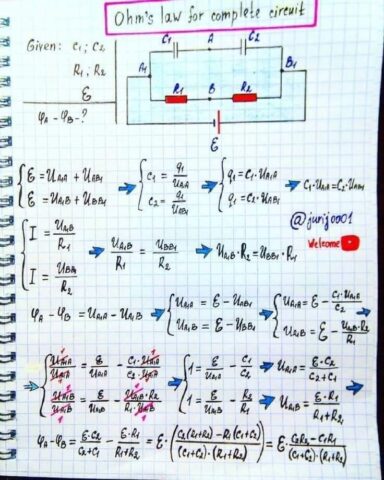 Ohm's law for complete circuit
Given: C₁; C₂
R₁; R₂
ℰ
φA - φB - ?
C₁ A C₂
A₁ B₁
R₁ B R₂
ℰ
{ℰ = UA₁A + UAB₁
ℰ = UA₁B + UBB₁ → {C₁ = q₁/UA₁A
C₂ = q₁/UAB₁ → {q₁ = C₁·UA₁A
q₁ = C₂·UAB₁ → C₁·UA₁A = C₂·UAB₁
@jurijooo1
Welcome
{I = UA₁B/R₁
I = UBB₁/R₂ → UA₁B/R₁ = UBB₁/R₂ → UA₁B·R₂ = UBB₁·R₁
φA - φB = UA₁A - UA₁B → {UA₁A = ℰ - UAB₁
UA₁B = ℰ - UBB₁ → {UA₁A = ℰ - C₁·UA₁A/C₂
UA₁B = ℰ - UA₁B·R₂/R₁ →
→ {UA₁A/UA₁A = ℰ/UA₁A - C₁·UA₁A/C₂·UA₁A
UA₁B/UA₁B = ℰ/UA₁B - UA₁B·R₂/R₁·UA₁B → {1 = ℰ/UA₁A - C₁/C₂
1 = ℰ/UA₁B - R₂/R₁ → UA₁A = ℰ·C₂/C₂+C₁
UA₁B = ℰ·R₁/R₁+R₂ →
φA - φB = ℰ·C₂/C₂+C₁ - ℰ·R₁/R₁+R₂ = ℰ·(C₂(R₁+R₂) - R₁(C₁+C₂)/(C₁+C₂)·(R₁+R₂)) = ℰ·C₂R₂ - C₁R₁/(C₁+C₂)·(R₁+R₂)